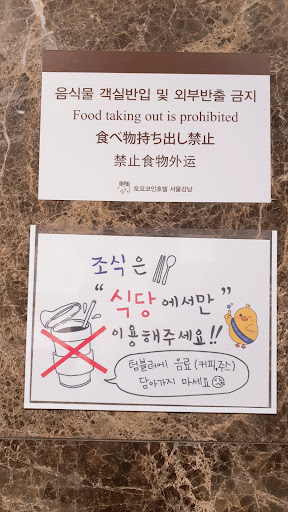 음식물 객실반입 및 외부반출 금지
Food taking out is prohibited
食べ物持ち出し禁止
禁止食物外运
토요코인호텔 서울강남
조식은
“식당에서만”
이용해주세요!!
텀블러에 음료(커피,주스)
담아가지 마세요